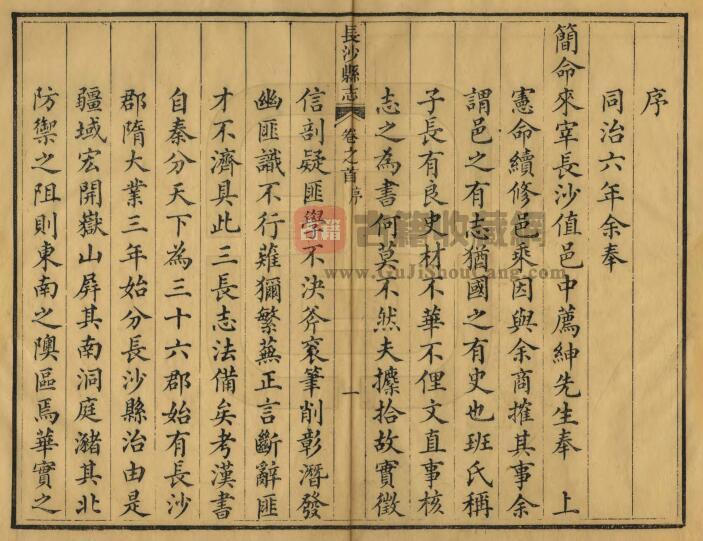 序
同治六年余奉
簡命來宰長沙值邑中薦紳先生奉 上
憲命續修邑乘因與余商搉其事余
謂邑之有志猶國之有史也班氏稱
子長有良史材不華不俚文直事核
志之為書何莫不然夫攗拾故實徵
長沙縣志 卷之首 序 一
信剖疑匪學不決斧袞筆削彰潛發
幽匪識不行薙獮繁蕪正言斷辭匪
才不濟具此三長志法備矣考漢書
自秦分天下為三十六郡始有長沙
郡隋大業三年始分長沙縣治由是
疆域宏開嶽山屏其南洞庭瀦其北
防禦之阻則東南之隩區焉華實之
古籍 古籍收藏網
www.GuJiShouCang.com